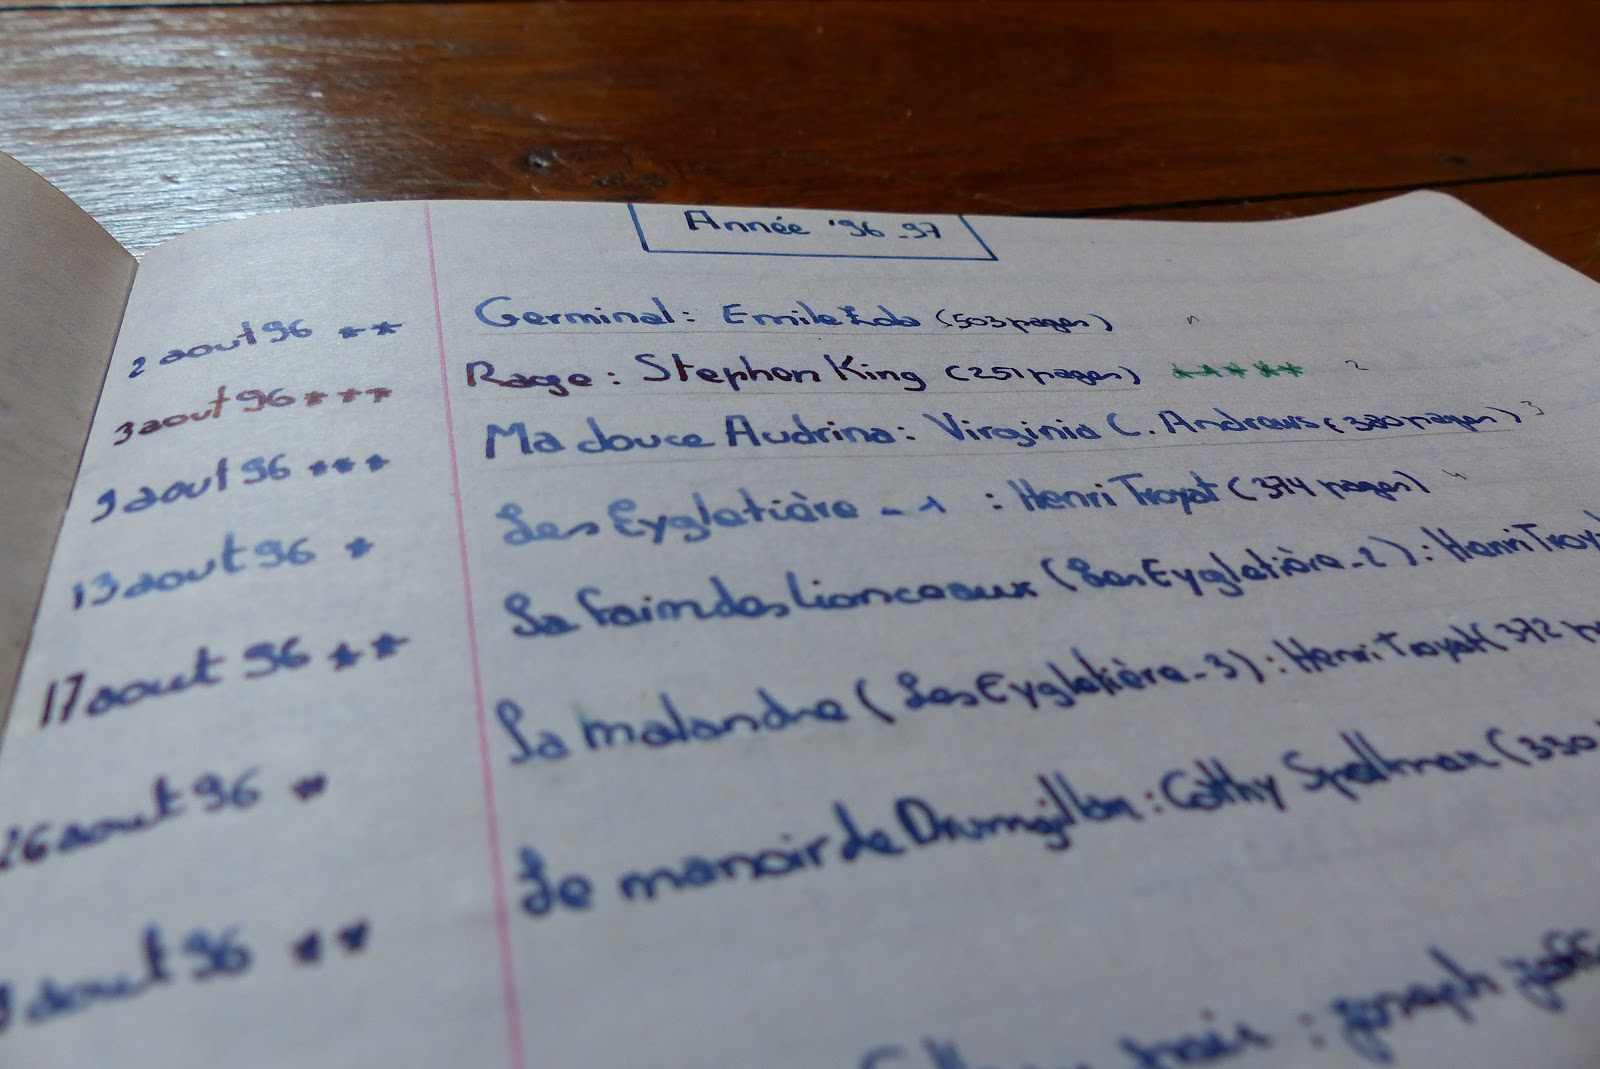 Année '96-97
2 aout 96 ** Germinal: Emile Zola (503 pages) 1
3 aout 96 *** Rage: Stephen King (251 pages) ***** 2
9 aout 96 *** Ma douce Audrina: Virginia C. Andrews (380 pages) 3
13 aout 96 * Les Eygletière - 1 : Henri Troyat (374 pages) 4
17 aout 96 ** La faim des lionceaux (Les Eygletière - 2): Henri Troya
26 aout 96 * La malandre (Les Eygletière - 3): Henri Troyat (372 p
9 aout 96 ** Le manoir de Drumgillan: Cathy Spellman (330
noir : joseph